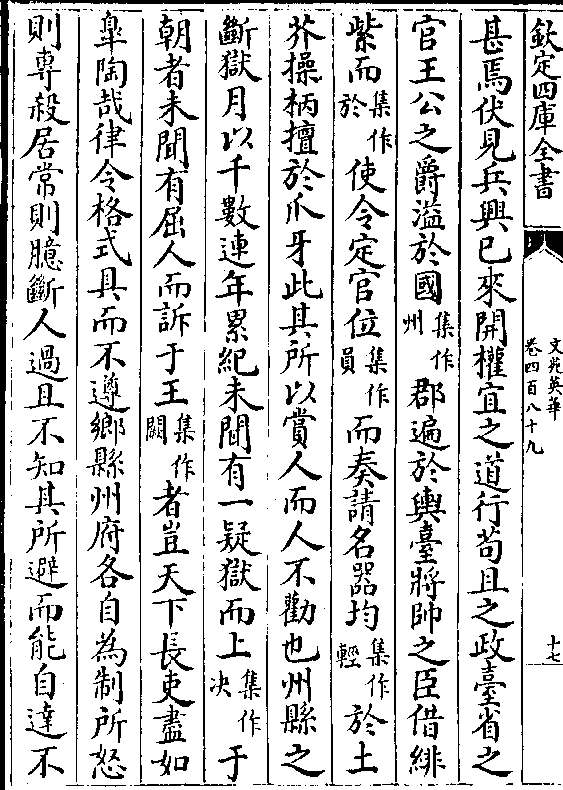 欽定四庫全書
文苑英華
卷四百八十九
十七
甚焉伏見兵興已來開權宜之道行苟且之政臺省之
官王公之爵溢於國集作州郡遍於輿臺將帥之臣借緋
紫而集作於使令定官位集作員而奏請名器均集作輕於土
芥操柄擅於爪牙此其所以賞人而人不勸也州縣之
斷獄月以千數連年累紀未聞有一疑獄而上集作决于
朝者未聞有屈人而訴于王集作闕者豈天下長吏盡如
臯陶哉律令格式具而不遵鄉縣州府各自為制所怒
則專殺居常則臆斷人過且不知其所避而能自達不